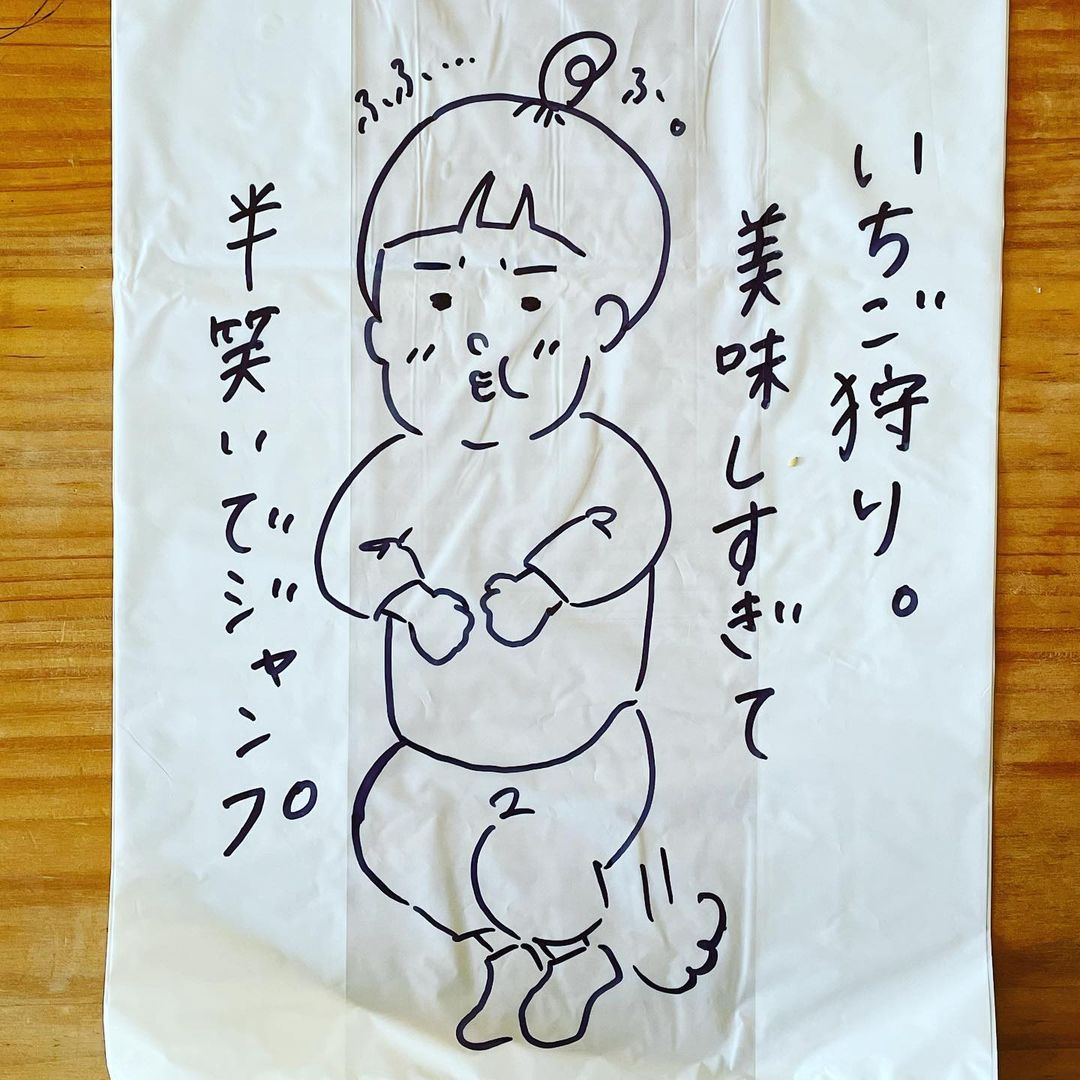 いちご狩り。
美味しすぎて
半笑いでジャンプ
ふふ…
ふ。